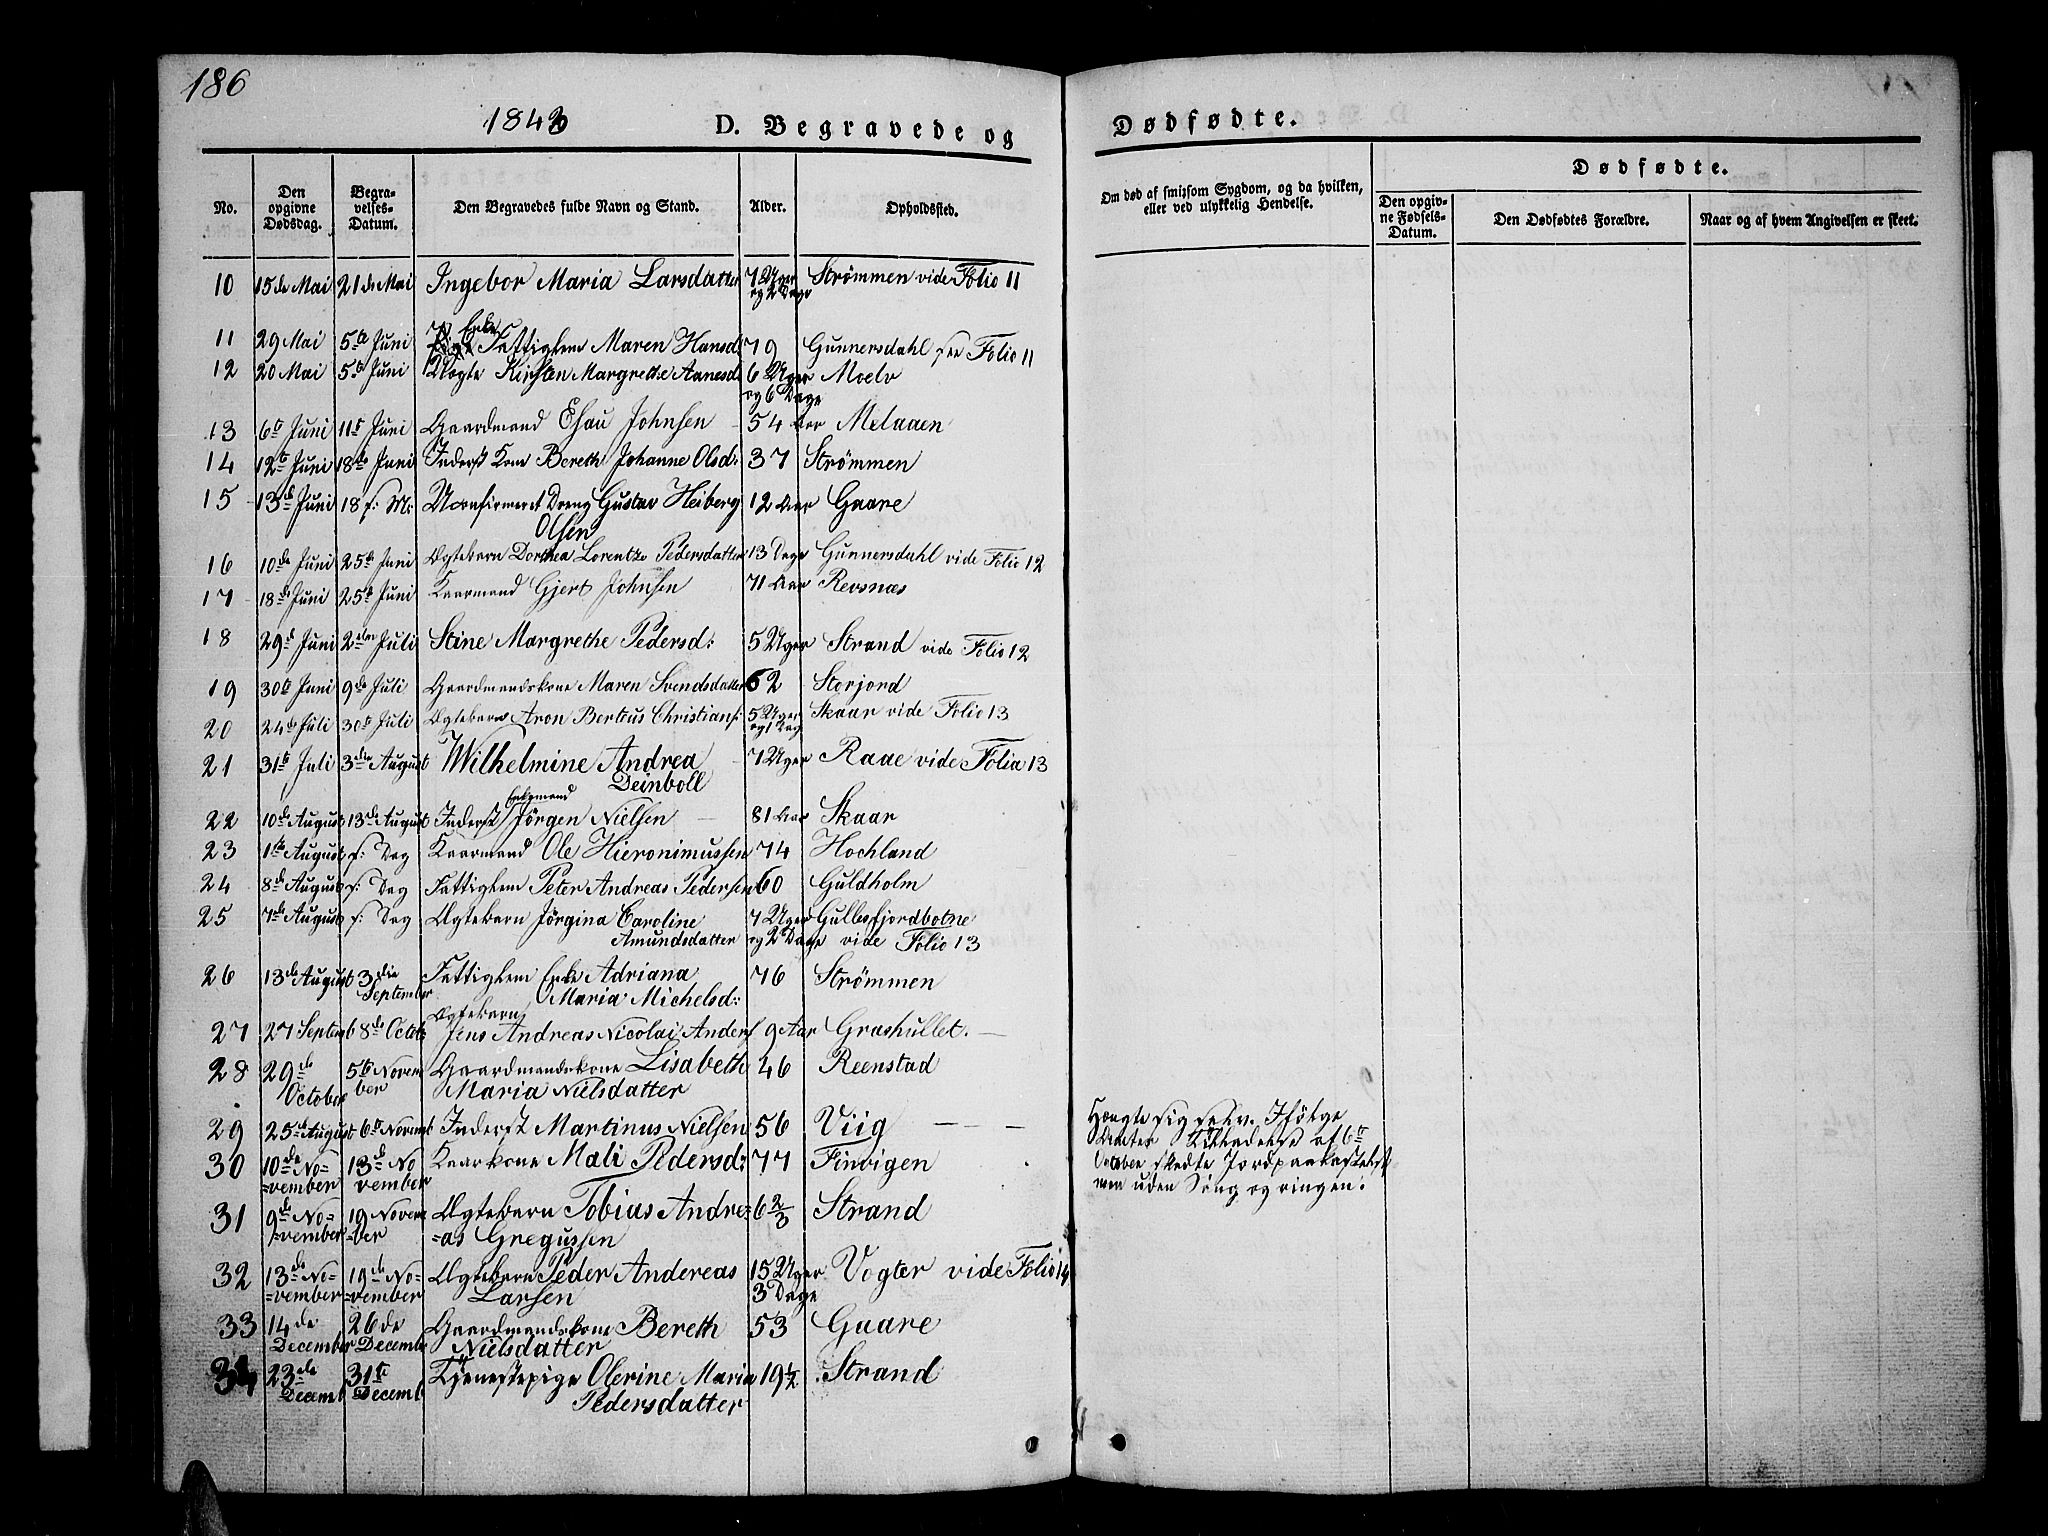 186
1843 D. Begravede og Dødfødte.
Dødfødte.
No. Den opgivne Dødsdag. Begravelses-Datum. Den Begravedes fulde Navn og Stand. Alder. Opholdssted. Om død af smitsom Sygdom, og da hvilken, eller ved ulykkelig Hendelse. Den opgivne Fødsels-Datum. Den Dødfødtes Forældre. Naar og af hvem Angivelsen er skeet.
10 15de Mai 21de Mai Ingebor Maria Larsdatter 7 Uger og 2 Dage Strömmen vide Folio 11
11 29 Mai 5te Juni Enke Fattiglem Maren Hansd: 79 Gunnersdahl see Folio 11
12 20 Mai 5te Juni Kirsten Margrethe Aanesd: 6 Uger og 6 Dage Moelv
13 6te Juni 11te Juni Gaardmand Esau Johnsen 54 Aar Melaaen
14 12te Juni 18de Juni Inderst Kone Bereth Johanne Olsd: 37 Strömmen
15 13de Juni 18 s: M: Uconfirmeret Dreng Gustav Heiberg
Olsen 12 Aar Gaare
16 10de Juni 25de Juni Ægtebarn Dorthea Lorentze Pedersdatter 13 Dage Gunnersdahl vide Folio 12
17 18de Juni 25de Juni Kaarmand Gjert Johnsen 71 Aar Revsnæs
18 29de Juni 2den Juli Stine Margrethe Pedersd: 5 Uger Strand vide Folio 12
19 30te Juni 9de Juli Gaardmandskone Maren Svendsdatter 62 Storjord
20 24de Juli 30te Juli Ægtebarn Aron Berteus Christians: 5 Uger og 1 Dag Skaar vide Folio 13
21 31te Juli 3die August Wilhelmine Andrea
Deinboll 7 Uger Raae vide Folia 13
22 10de August 13de August Inderst Enkemand Jörgen Nielsen 81 Aar Skaar
23 1ste August s: Dag Kaarmand Ole Hieronimussen 74 Hochland
24 8de August s: Dag Fattiglem Peter Andreas Pedersen 60 Guldholm
25 7de August s: Dag Ægtebarn Jörgina Caroline
Amundsdatter 7 Uger og 2 Dage Gullesfjordbotne
vide Folio 13
26 13de August 3die September Fattiglem Enke Adriana
Maria Michelsd: 76 Strömmen
27 27 Septemb 8de Octob: Ægtebarn
Jens Andreas Nicolai Anders 9 Aar Grashullet.
28 29de October 5te November Gaardmandskone Lisabeth
Maria Nielsdatter 46 Reenstad
29 25de August 6te Novemb Inderst Martinus Nielsen 56 Viig Hængte sig selv. Ifölge
Amter Tilladelse af 6te
October skedte Jordpaakastelse
men uden Sang og ringen:
30 10de November 13de November Kaarkone Mali Pedersd: 77 Finvigen
31 9de November 19 November Ægtebarn Tobias Andre=
=as Gregussen 6 2/3 Strand
32 13de November 19de November Ægtebarn Peder Andereas
Larsen 15 Uger 3 Dage Vogter vide Folio 14
33 14de December 26de December Gaardmandskone Bereth
Nielsdatter 53 Gaare
34 23de Decemb 31te Decemb Tjenestepige Olerine Maria
Pedersdatter 19 1/2 Strand